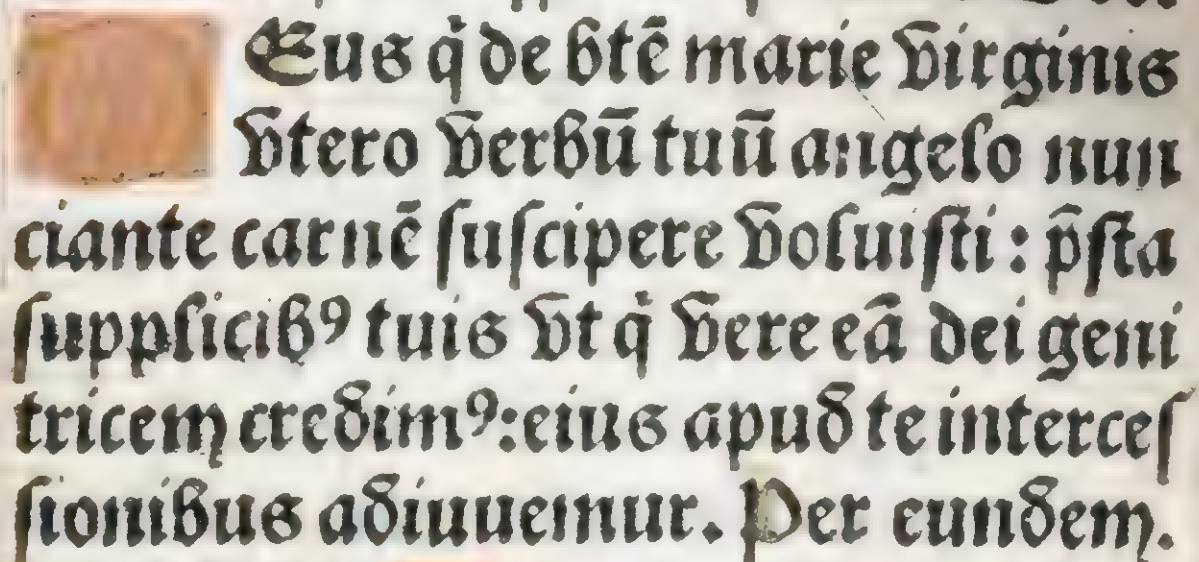 DEus q̇ de btē marie virginis
vtero verbū tuū angelo nun
ciante carnē ſuſcipere voluiſti: p̄ſta
ſupplicibꝰ tuis vt q̇ vere eā dei geni
tricem credimꝰ: eius apud te interceſ
ſionibus adiuuemur. Per eundem.